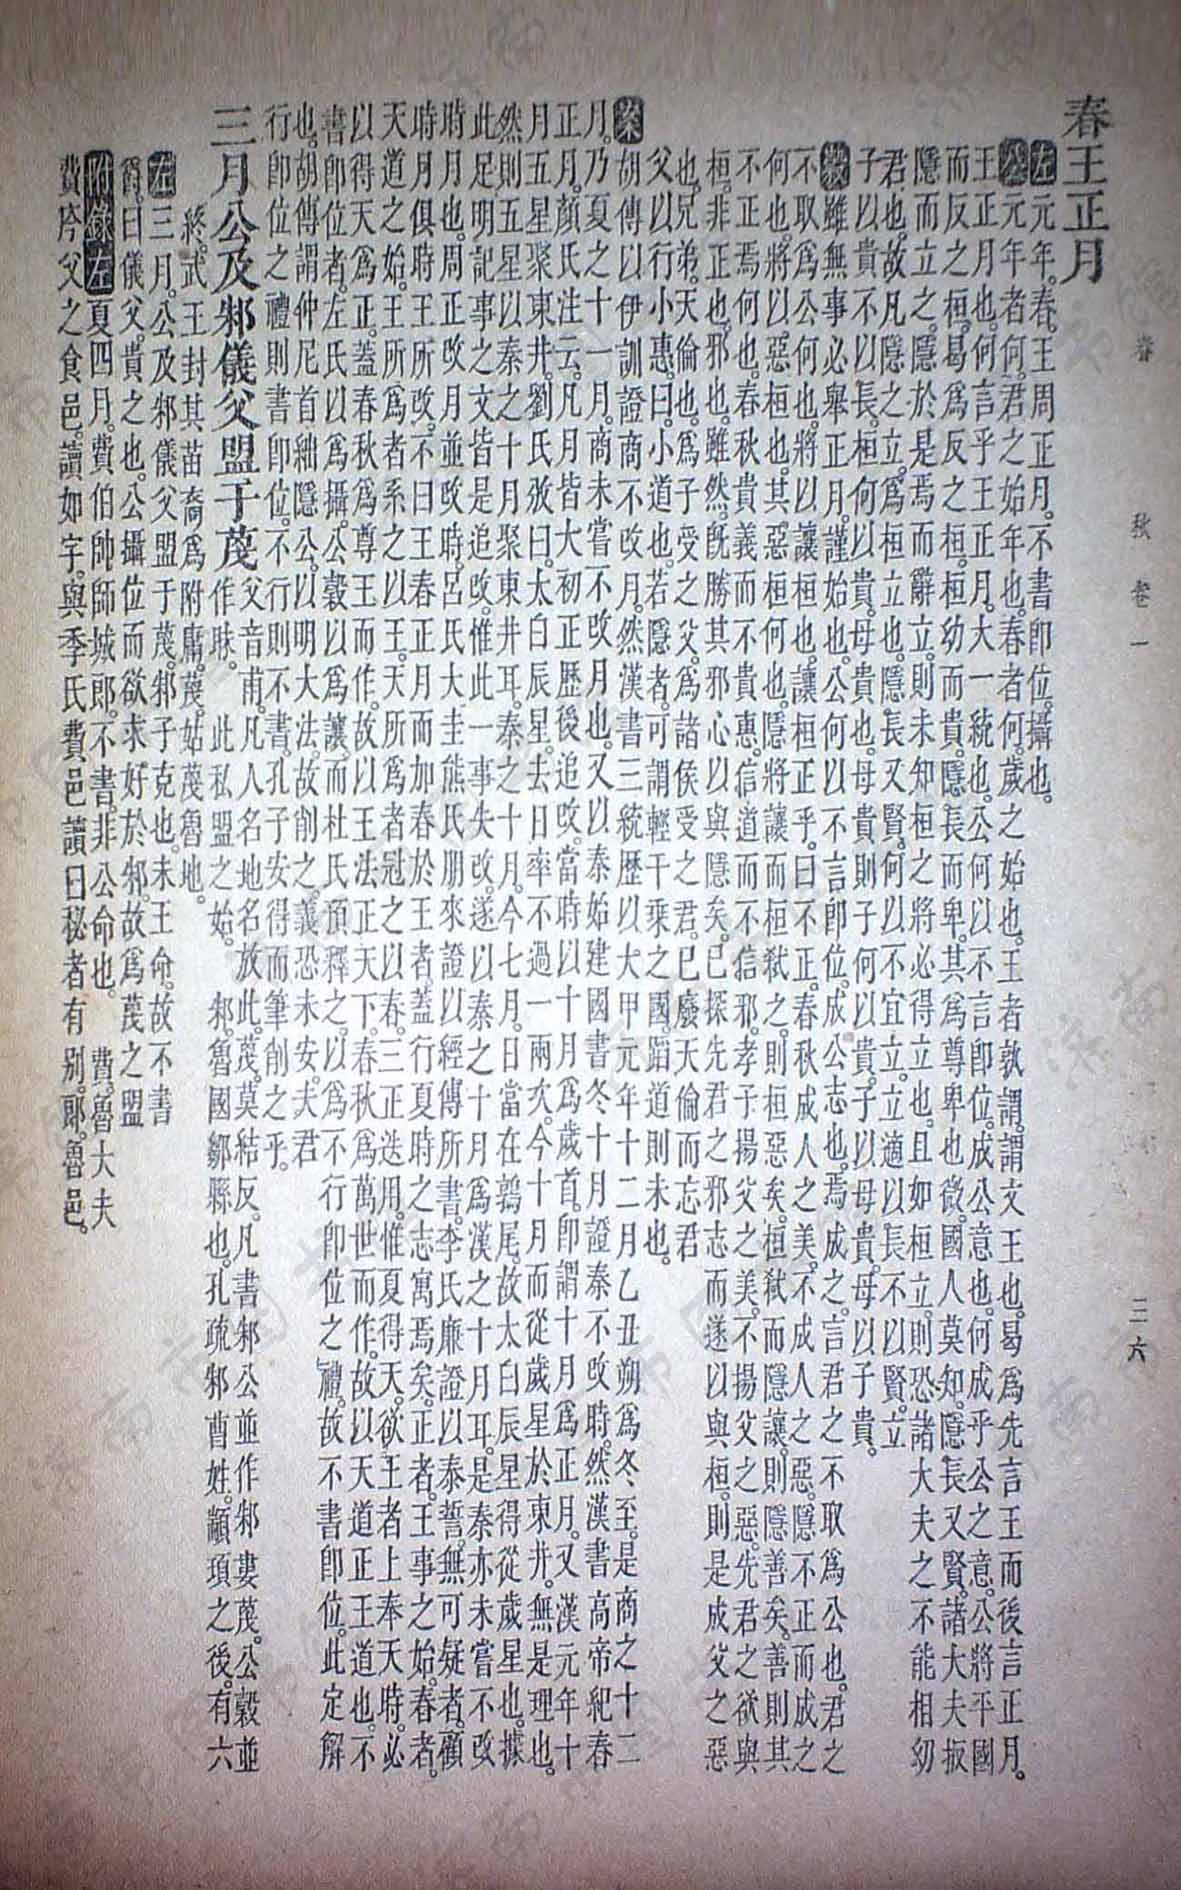 春秋卷一
三六
春王正月
左元年。春。王周正月。不書卽位。攝也。
公元年者何。君之始年也。春者何。歲之始也。王者孰謂。謂文王也。曷爲先言王而後言正月。
王正月也。何言乎王正月。大一統也。公何以不言卽位。成公意也。何成乎公之意。公將平國
而反之桓。曷爲反之桓。桓幼而貴。隱長而卑。其爲尊卑也微。國人莫知。隱長又賢。諸大夫扳
隱而立之。隱於是焉而辭立。則未知桓之將必得立也。且如桓立。則恐諸大夫之不能相幼
君也。故凡隱之立。爲桓立也。隱長又賢。何以不宜立。立適以長不以賢。立
子以貴不以長。桓何以貴。母貴也。母貴則子何以貴。子以母貴。母以子貴。
穀雖無事必舉正月。謹始也。公何以不言卽位。成公志也。焉成之。言君之不取爲公也。君之
不取爲公何也。將以讓桓也。讓桓正乎。曰不正。春秋成人之美。不成人之惡。隱不正而成之
何也。將以惡桓也。其惡桓何也。隱將讓而桓弒之。則桓惡矣。桓弒而隱讓。則隱善矣。善則其
不正焉何也。春秋貴義而不貴惠。信道而不信邪。孝子揚父之美。不揚父之惡。先君之欲與
桓。非正也。邪也。雖然。旣勝其邪心以與隱矣。已探先君之邪志而遂以與桓。則是成父之惡
也。兄弟。天倫也。爲子受之父。爲諸侯受之君。已廢天倫而忘君
父以行小惠。曰。小道也。若隱者。可謂輕千乘之國。蹈道則未也。
案胡傳以伊訓證商不改月。然漢書三統歷以大甲元年十二月乙丑朔爲冬至。是商之十二
月。乃夏之十一月。商未嘗不改月也。又以秦始建國書冬十月證秦不改時。然漢書高帝紀春
正月。顏氏注云。凡月皆大初正歷後追改。當時以十月爲歲首。卽謂十月爲正月。又漢元年十
月五星聚東井。劉氏攽曰。太白辰星。去日率不過一兩次。今十月而從歲星於東井。無是理也。
然則五星以秦之十月聚東井耳。秦之十月。今七月。日當在鶉尾。故太白辰星得從歲星也。據
此足明記事之文皆是追改。惟此一事失改。遂以秦之十月爲漢之十月耳。是秦亦未嘗不改
時月也。周正改月並改時。呂氏大圭熊氏朋來證以經傳所書。李氏廉證以泰誓。無可疑者。顧
時月俱時王所改。不曰王春正月而加春於王者。蓋行夏時之志寓焉矣。正者。王事之始。春者。
天道之始。王所爲者系之以王。天所爲者冠之以春。三正迭用。惟夏得天。欲王者上奉天時。必
以得天爲正。蓋春秋爲尊王而作。故以王法正天下。春秋爲萬世而作。故以天道正王道也。不
書卽位者。左氏以爲攝。公穀以爲讓。而杜氏預釋之。以爲不行卽位之禮。故不書卽位。此定解
也。胡傳謂仲尼首絀隱公。以明大法。故削之。義恐未安。夫君
行卽位之禮則書卽位。不行則不書。孔子安得而筆削之乎。
三月公及邾儀父盟于蔑
父音甫。凡人名地名放此。蔑。莫結反。凡書邾公並作邾婁蔑。公穀並
作眜。此私盟之始。邾。魯國鄒縣也。孔疏邾曹姓。顓頊之後。有六
終。武王封其苗裔爲附庸。蔑。姑蔑魯地。
左三月。公及邾儀父盟于蔑。邾子克也。未王命。故不書
爵。曰儀父。貴之也。公攝位而欲求好於邾。故爲蔑之盟
附錄左夏四月。費伯帥師城郎。不書。非公命也。費。魯大夫
費庈父之食邑。讀如字。與季氏費邑讀曰秘者有別。郎。魯邑。